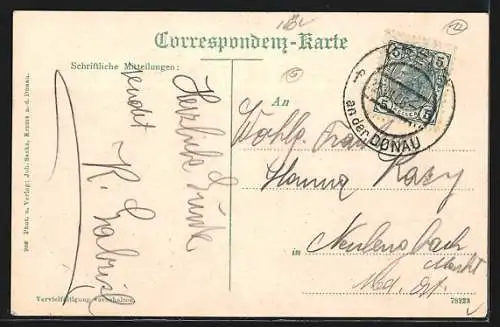 Correspondenz-Karte
Schriftliche Mitteilungen:
Herzliche Grüße
sendet
K. Gabriel
An
Wohlg. Frau
in
Neulengbach
Markt
an der DONAU
5 5
5 5
Phot. u. Verlag: Joh. Sacha, Krems a. d. Donau.
Vervielfältigung vorbehalten.
78223